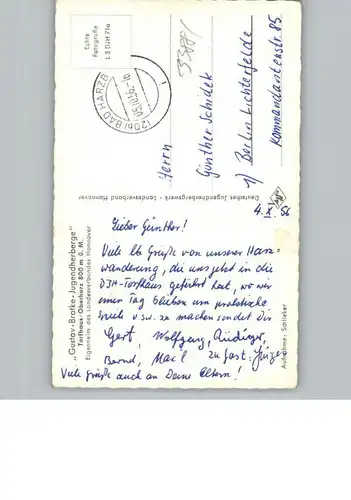 Echte
Fotografie
L 3 DJH 71a
(20b) BAD HARZB
-5.10.56.-10
53881
Herrn
Günther Schidek
1) Berlin Lichterfelde
Kommandantenstr. 85
Deutsches Jugendherbergswerk - Landesverband Hannover
4. X. 56
Lieber Günther!
Viele lb Grüße von unserer Harz-
wanderung, die uns jetzt in die
DJH-Torfhaus geführt hat, wo wir
einen Tag bleiben um
Spiele usw. zu machen sendet Dir
Gert, Wolfgang, Rüdiger,
Bernd,
zu Gast: Jürgen
Viele Grüße auch an Deine Eltern!
„Gustav-Bratke-Jugendherberge"
Torfhaus-Oberharz 800 m ü. M.
Eigenheim des Landesverbandes Hannover
Aufnahme: Schlieker